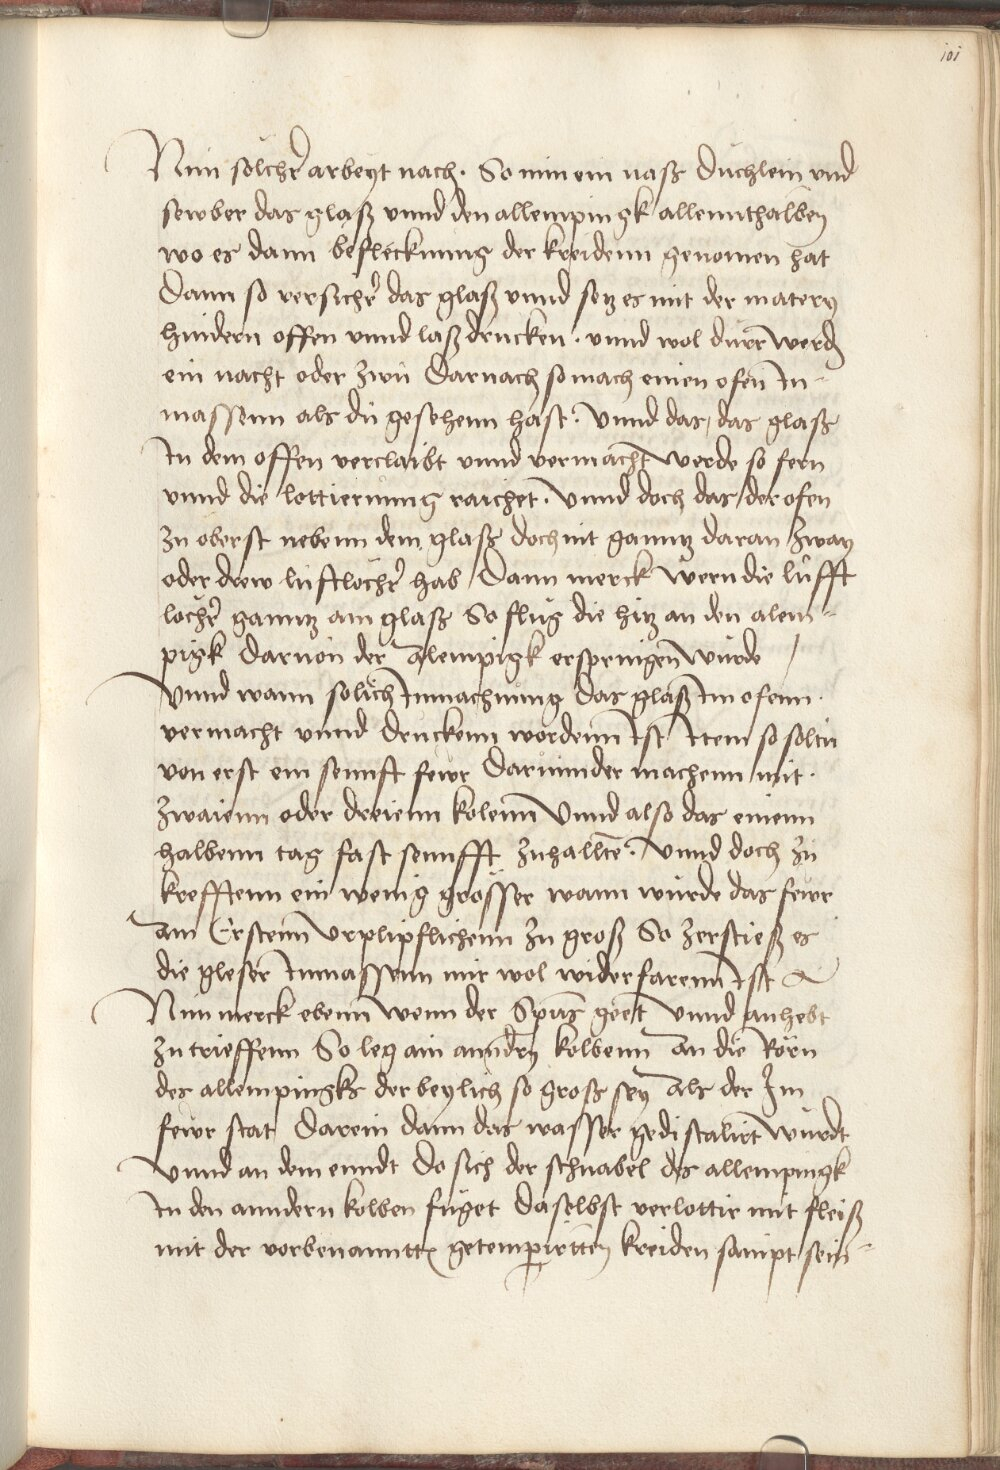 101
Nun solcher arbeyt nach. So nim ein naß duchlein vnd
sewber das glaß vnnd den allempingk allennthalben
wo es dann beflecknung der kreidenn genomen hat
Dann so versicher das glaß vnnd setz es mit der matery
hindern offen vnnd laß drucken. vnnd wol durr werden
ein nacht oder zwu Darnach so mach einen ofen In-
massenn als du gesehenn hast. Vnnd das, das glaß
In dem offen verclaibt vnnd vermacht werde so fern
vnnd die lottiernung raichet. Vnnd doch das der ofen
zu oberst nebenn dem glaß doch nit ganntz daran zway
oder drew luftlocher hab Dann merck wern die lufft
locher ganntz am glaß So flug die hitz an den alem-
pigk Daruon der Alempigk ersprnigen wurde /
Vnnd wann solich Inmachung das glaß Im ofenn.
vermacht vnnd druckenn wordenn Ist Item so soltu
von erst ein sennft fewr Darunnder machenn mit.
zwaienn oder dreienn kolenn Vnnd also das einenn
halbenn tag fast sennfft zuhallten. Vnnd doch zu
krefftenn ein wenig grosser wann wurde das fewr
am Erstenn Vrplipflichenn zu groß So zerstieß es
die gleser Inmassenn mir wol widerfarenn Ist
Nun merck ebenn wenn der Spuß geet Vnnd anhebt
zu trieffenn So leg ain anndern kolbenn An die Rorn
des allempingks der beylich so groß sey Als der Im
fewr stat Darein dann das wasser gedistalirt wurdt
Vnnd an dem enndt Do sich der schnabel des allempingk
In den anndern kolben fuget Daselbst verlottir mit fleiß
mit der vorbenannten getempirtten kreiden sampt sein-